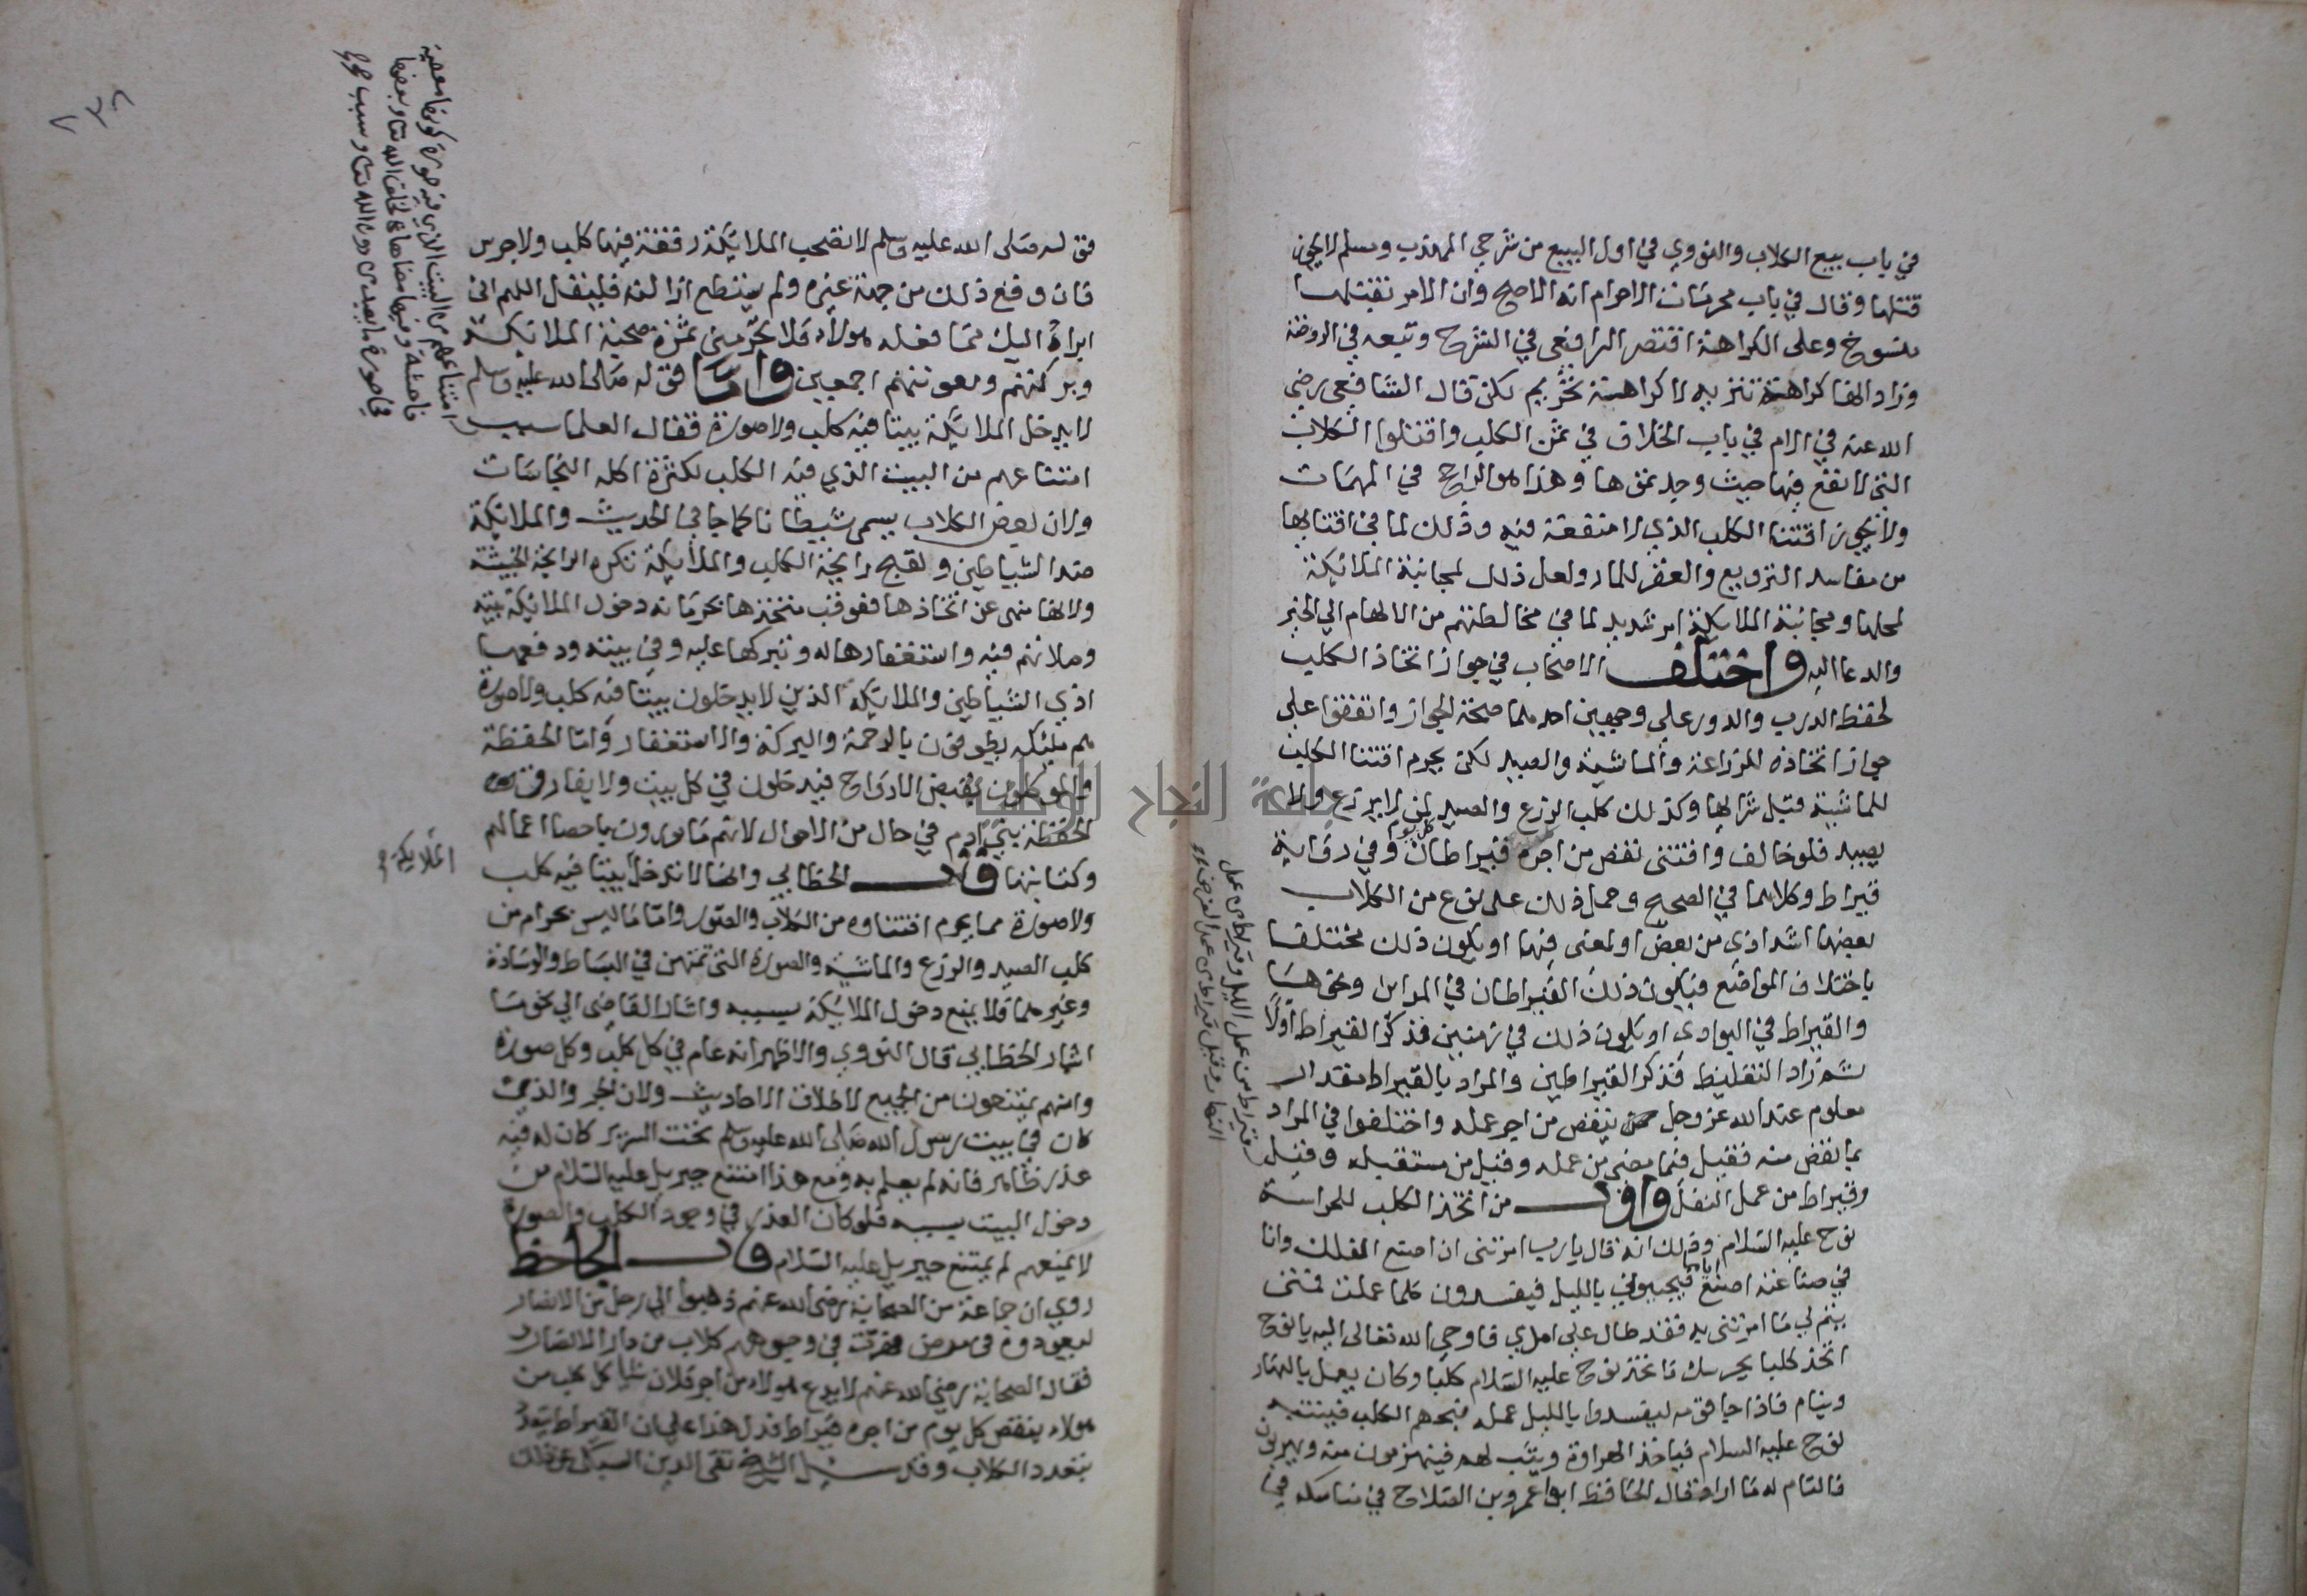 في باب بيع الكلاب والنووي في اول البيع من شرحي المهذب ومسلم لا يجوز
قتلها وقال في باب محرمات الاحرام انه الاصح وان الامر بقتلها
منسوخ وعلى الكراهة اقتصر الرافعي في الشرح وتبعه في الروضة
وزاد انها كراهة تنزيه لا كراهة تحريم لكن قال الشافعي رضي
الله عنه في الام في باب الخلاف في ثمن الكلب واقتلوا الكلاب
التي لا نفع فيها حيث وجدتموها وهذا هو الراجح في المهمات
ولا يجوز اقتنا الكلب الذي لا منفعة فيه وذلك لما في اقتنايها
من مفاسد الترويع والعقر للمار ولعل ذلك لمجانبة الملائكة
لمحلها ومجانبة الملايكة امر شديد لما في مخالطتهم من الالهام الي الخير
والدعا اليه واختلف الاصحاب في جواز اتخاذ الكلب
لحفظ الدرب والدور على وجهين احدهما صحة الجواز واتفقوا على
جواز اتخاذه للزراعة والماشية والصيد لكن يحرم اقتنا الكلب
للماشية قبل شرايها وكذلك كلب الزرع والصيد لمن لا يزرع ولا
يصيد فلو خالف واقتنى نقص من اجره كل يوم قيراطان وفي رواية
قيراط وكلاهما في الصحيح وحمل ذلك على نوع من الكلاب
بعضها اشد اذى من بعض او لمعنى فيها او يكون ذلك مختلفا
باختلاف المواضع فيكون ذلك القيراطان في المداين ونحوها
والقيراط في البوادي او يكون ذلك في زمنين فذكر القيراط اولا
ثم زاد التغليظ فذكر القيراطين والمراد بالقيراط مقدار
معلوم عند الله عز وجل ينقص من اجر عمله واختلفوا في المراد
بما نقص منه فقيل فيما مضى من عمله وقيل من مستقبله وقيل
قيراط من عمل الليل وقيراط من عمل
النهار وقيل قيراط من عمل الفرض
وقيراط من عمل النفل واول من اتخذ الكلب للحراسة
نوح عليه السلام وذلك انه قال يا رب امرتني ان اصنع الفلك وانا
في صناعته اصنع اياما فيجيبوني بالليل فيفسدون كلما عملت فمتى
يتم لي ما امرتني به فقد طال علي املي فاوحي الله تعالى اليه يا نوح
اتخذ كلبا يحرسك فاتخذ نوح عليه السلام كلبا وكان يعمل بالنهار
وينام فاذا جا قومه ليفسدوا بالليل عمله نبحهم الكلب فينتبه
نوح عليه السلام فياخذ الهراوة ويثب لهم فينهزمون منه ويهربون
فالتام له ما اراد قال الحافظ ابو عمرو بن الصلاح في مناسكه في
قوله صلى الله عليه وسلم لا تصحب الملايكة رفقة فيها كلب ولا جرس
فان وقع ذلك من جهة غيره ولم يستطع ازالته فليقل اللهم اني
ابراء اليك مما فعله هولاء فلا تحرمني ثمرة صحبة الملائكة
وبركتهم ومعونتهم اجمعين واما قوله صلى الله عليه وسلم
لا يدخل الملايكة بيتا فيه كلب ولا صورة فقال العلما سبب
امتناعهم من البيت الذي فيه صورة كونها معصية
فاحشة وفيها مضاهاة لخلق الله تعا وبعضها
في صورة ما يعبد من دون الله تعا وسبب
امتناعهم من البيت الذي فيه الكلب لكثرة اكله النجاسات
ولان بعض الكلاب يسمى شيطانا كما جا في الحديث والملايكة
ضد الشياطين ولقبح رايحة الكلب والملايكة تكره الرايحة الخبيثة
ولانها منهى عن اتخاذها فعوقب متخذها بحرمانه دخول الملايكة بيته
وصلاتهم فيه واستغفارها له وتبركها عليه وفي بيته ودفعها
اذى الشياطين والملايكة الذين لا يدخلون بيتا فيه كلب ولا صورة
هم ملئكة يطوفون بالرحمة والبركة والاستغفار واما الحفظة
والموكلون بقبض الارواح فيدخلون في كل بيت ولا يفارق
الحفظة بني ادم في حال من الاحوال لانهم مامورون باحصا اعمالهم
وكتابتها قال الخطابي وانما لا تدخل الملايكة بيتا فيه كلب
ولا صورة مما يحرم اقتناوه من الكلاب والصور واما ما ليس بحرام من
كلب الصيد والزرع والماشية والصورة التي تمتهن في البساط والوسادة
وغيرهما فلا يمنع دخول الملايكة بسببه واشار القاضي الي نحو ما
اشار الخطابي قال النووي والاظهر انه عام في كل كلب وكل صورة
وانهم يمتنعون من الجميع لاطلاق الاحاديث ولان الجرو الذي
كان في بيت رسول الله صلى الله عليه وسلم تحت السرير كان له فيه
عذر ظاهر فانه لم يعلم به ومع هذا امتنع جبريل عليه السلام من
دخول البيت بسببه فلو كان العذر في وجود الكلب والصورة
لا يمنعهم لم يمتنع جبريل عليه السلام قال الجاحظ
روي ان جماعة من الصحابة رضي الله عنهم ذهبوا الي رجل من الانصار
ليعودوه في مرض فهرت في وجوههم كلاب من دار الانصار
فقال الصحابة رضي الله عنهم لا يدع هولاء من اجر فلان شيا كل كلب من
هولاء ينقص كل يوم من اجره قيراط فدل هذا على ان القيراط يتعدد
بتعدد الكلاب وقد سئل الشيخ تقي الدين السبكي عن ذلك
جامعة النجاح الوطنية